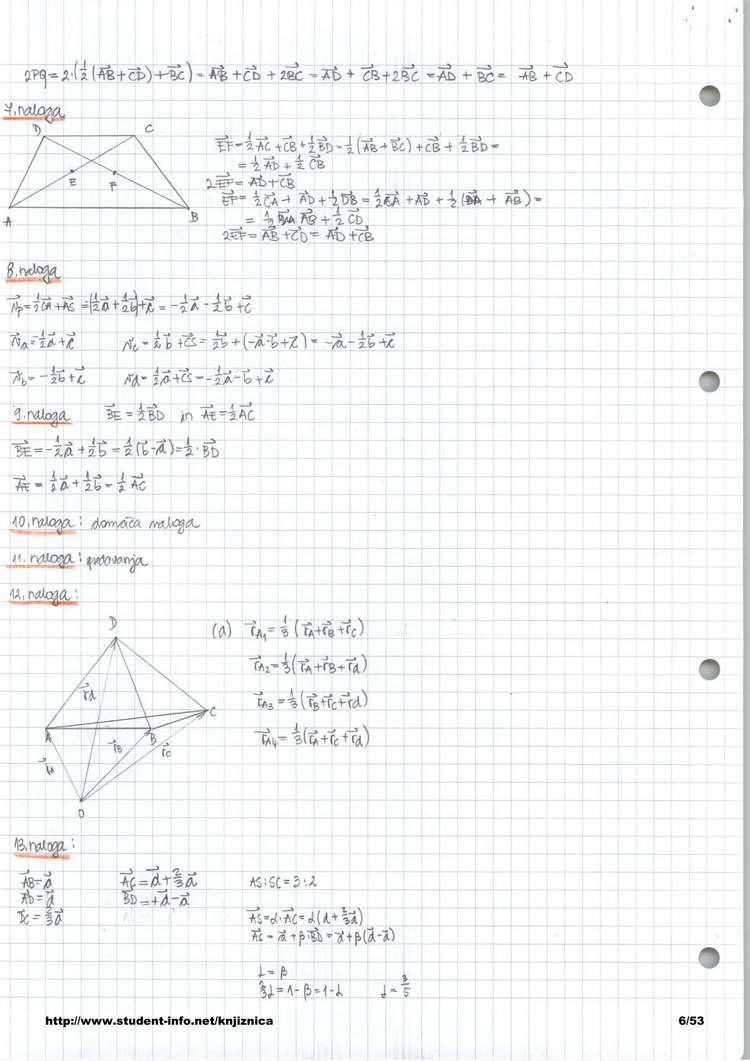 2PQ = 2·(½(AB⃗+CD⃗)+BC⃗) = AB⃗ + CD⃗ + 2BC⃗ = AD⃗ + CB⃗ + 2BC⃗ = AD⃗ + BC⃗ = AB⃗ + CD⃗
7. naloga
D C
E F
A B
EF⃗ = ½AC⃗ + CB⃗ + ½BD⃗ = ½(AB⃗ + BC⃗) + CB⃗ + ½BD⃗ =
= ½AD⃗ + ½CB⃗
2EF⃗ = AD⃗ + CB⃗
EF⃗ = ½CA⃗ + AD⃗ + ½DB⃗ = ½CA⃗ + AD⃗ + ½(DA⃗ + AB⃗) =
= ½ AB⃗ + ½CD⃗
2EF⃗ = AB⃗ + CD⃗ = AD⃗ + CB⃗
8. naloga
= ½CA⃗ + AS⃗ = = -½a⃗ - ½b⃗ + c⃗
-½b⃗ + c⃗
9. naloga BE⃗ = ½BD⃗ in AE⃗ = ½AC⃗
BE⃗ = -½a⃗ + ½b⃗ = ½(b⃗-a⃗) = ½·BD⃗
AE⃗ = ½a⃗ + ½b⃗ = ½AC⃗
10. naloga: domača naloga
11. naloga: predavanja
12. naloga:
D
(a) r⃗A₁ = ⅓(r⃗A + r⃗B + r⃗C)
r⃗A₂ = ⅓(r⃗A + r⃗B + r⃗d)
r⃗d
r⃗A₃ = ⅓(r⃗B + r⃗C + r⃗d)
C
A B
r⃗A₄ = ⅓(r⃗A + r⃗C + r⃗d)
r⃗B r⃗C
r⃗A
O
13. naloga:
AB⃗ = a⃗ AC⃗ = d⃗ + ⅔a⃗ AS:SC = 3:2
AD⃗ = d⃗ BD⃗ = +d⃗ - a⃗
DC⃗ = ⅔a⃗ AS⃗ = α·AC⃗ = α(d + ⅔a⃗)
AS⃗ = a⃗ + β·BD⃗ = a⃗ + β(d⃗-a⃗)
α = β
⅔α = 1-β = 1-α α = 3/5
http://www.student-info.net/knjiznica 6/53